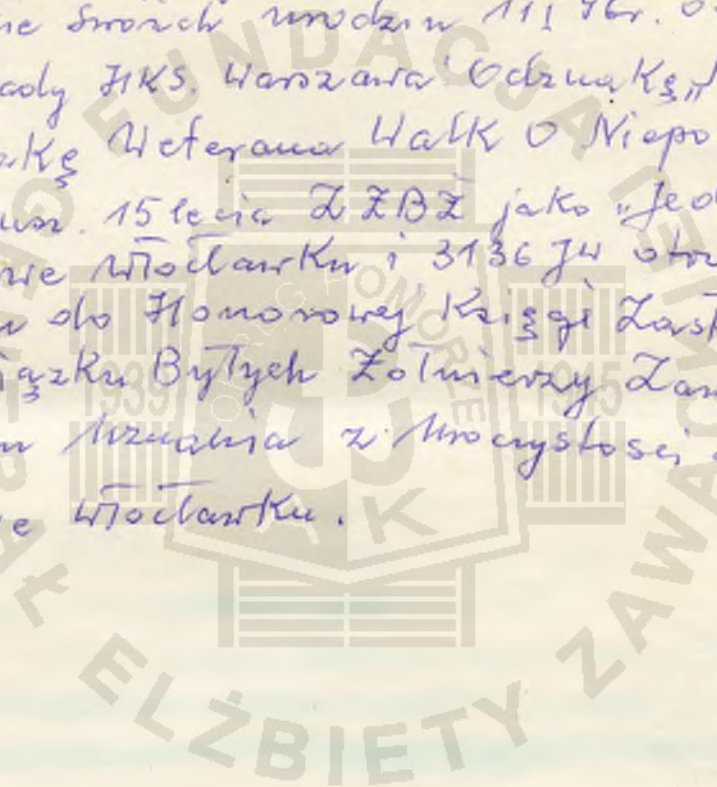 ne swoich urodzin 11 I 96r. o
ady HKS. Warszawa Odznakę "
akę Weterana Walk O Niepo
usz. 15 lecia ZŻBŻ jako "Jed
nie Włocławku i 3136 JW otr
do Honorowej Księgi Zasł
iązku Byłych Żołnierzy Zaw
m Uznania z Uroczystości
e Włocławku.
FUNDACJA GENERAŁ ELŻBIETY ZAWACKIEJ
POMORZE
1939 1945
AK